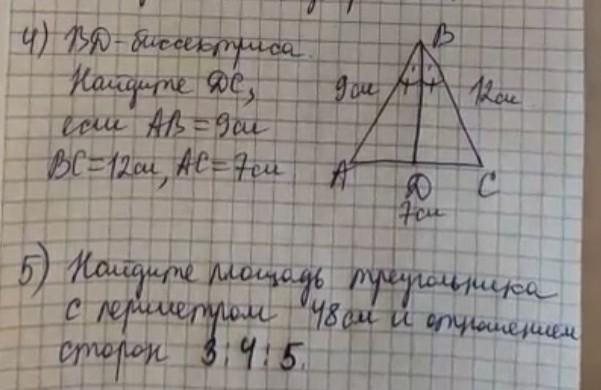 4) BD - биссектриса.
Найдите DC,
если AB = 9см
BC = 12см, AC = 7см
B
9см
12см
A
D
C
7см
5) Найдите площадь треугольника
с периметром 48см и отношением
сторон 3:4:5.